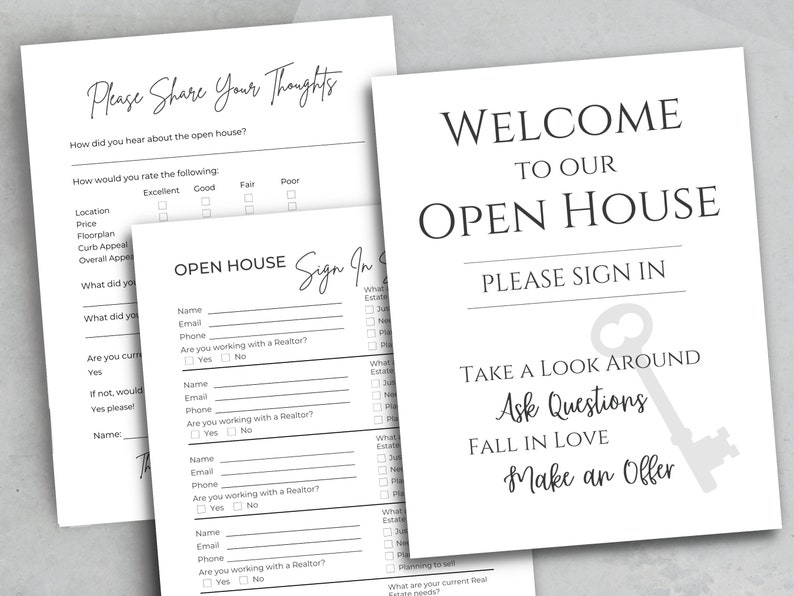 Please Share Your Thoughts
How did you hear about the open house?
How would you rate the following:
Excellent Good Fair Poor
Location
Price
Floorplan
Curb Appeal
Overall Appeal
What did you
What did you
Are you
Yes
If not, would
Yes please!
Name:
OPEN HOUSE Sign In
Name
Email
Phone
Are you working with a Realtor?
Yes No
What
Estate
Name
Email
Phone
Are you working with a Realtor?
Yes No
What
Estate
Name
Email
Phone
Are you working with a Realtor?
Yes No
What
Estate
Name
Email
Phone
Are you working with a Realtor?
Yes No
What
Estate
Planning to sell
What are your current Real
Estate needs?
WELCOME
TO OUR
OPEN HOUSE
PLEASE SIGN IN
TAKE A LOOK AROUND
Ask Questions
FALL IN LOVE
Make an Offer